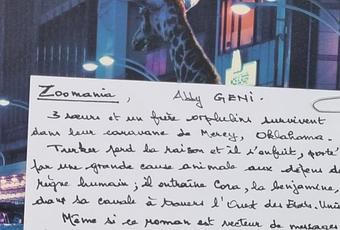 Zoomania, Abby GENI.
3 sœurs et un frère orphelins survivent
dans leur caravane de Mercy, Oklahoma.
Tucker perd la raison et il s'enfuit, porté
par une grande cause animale aux dépens du
règne humain ; il entraîne Cora, la benjamine,
dans sa cavale à travers l'Ouest des États-Unis
Même si ce roman est vecteur de messages